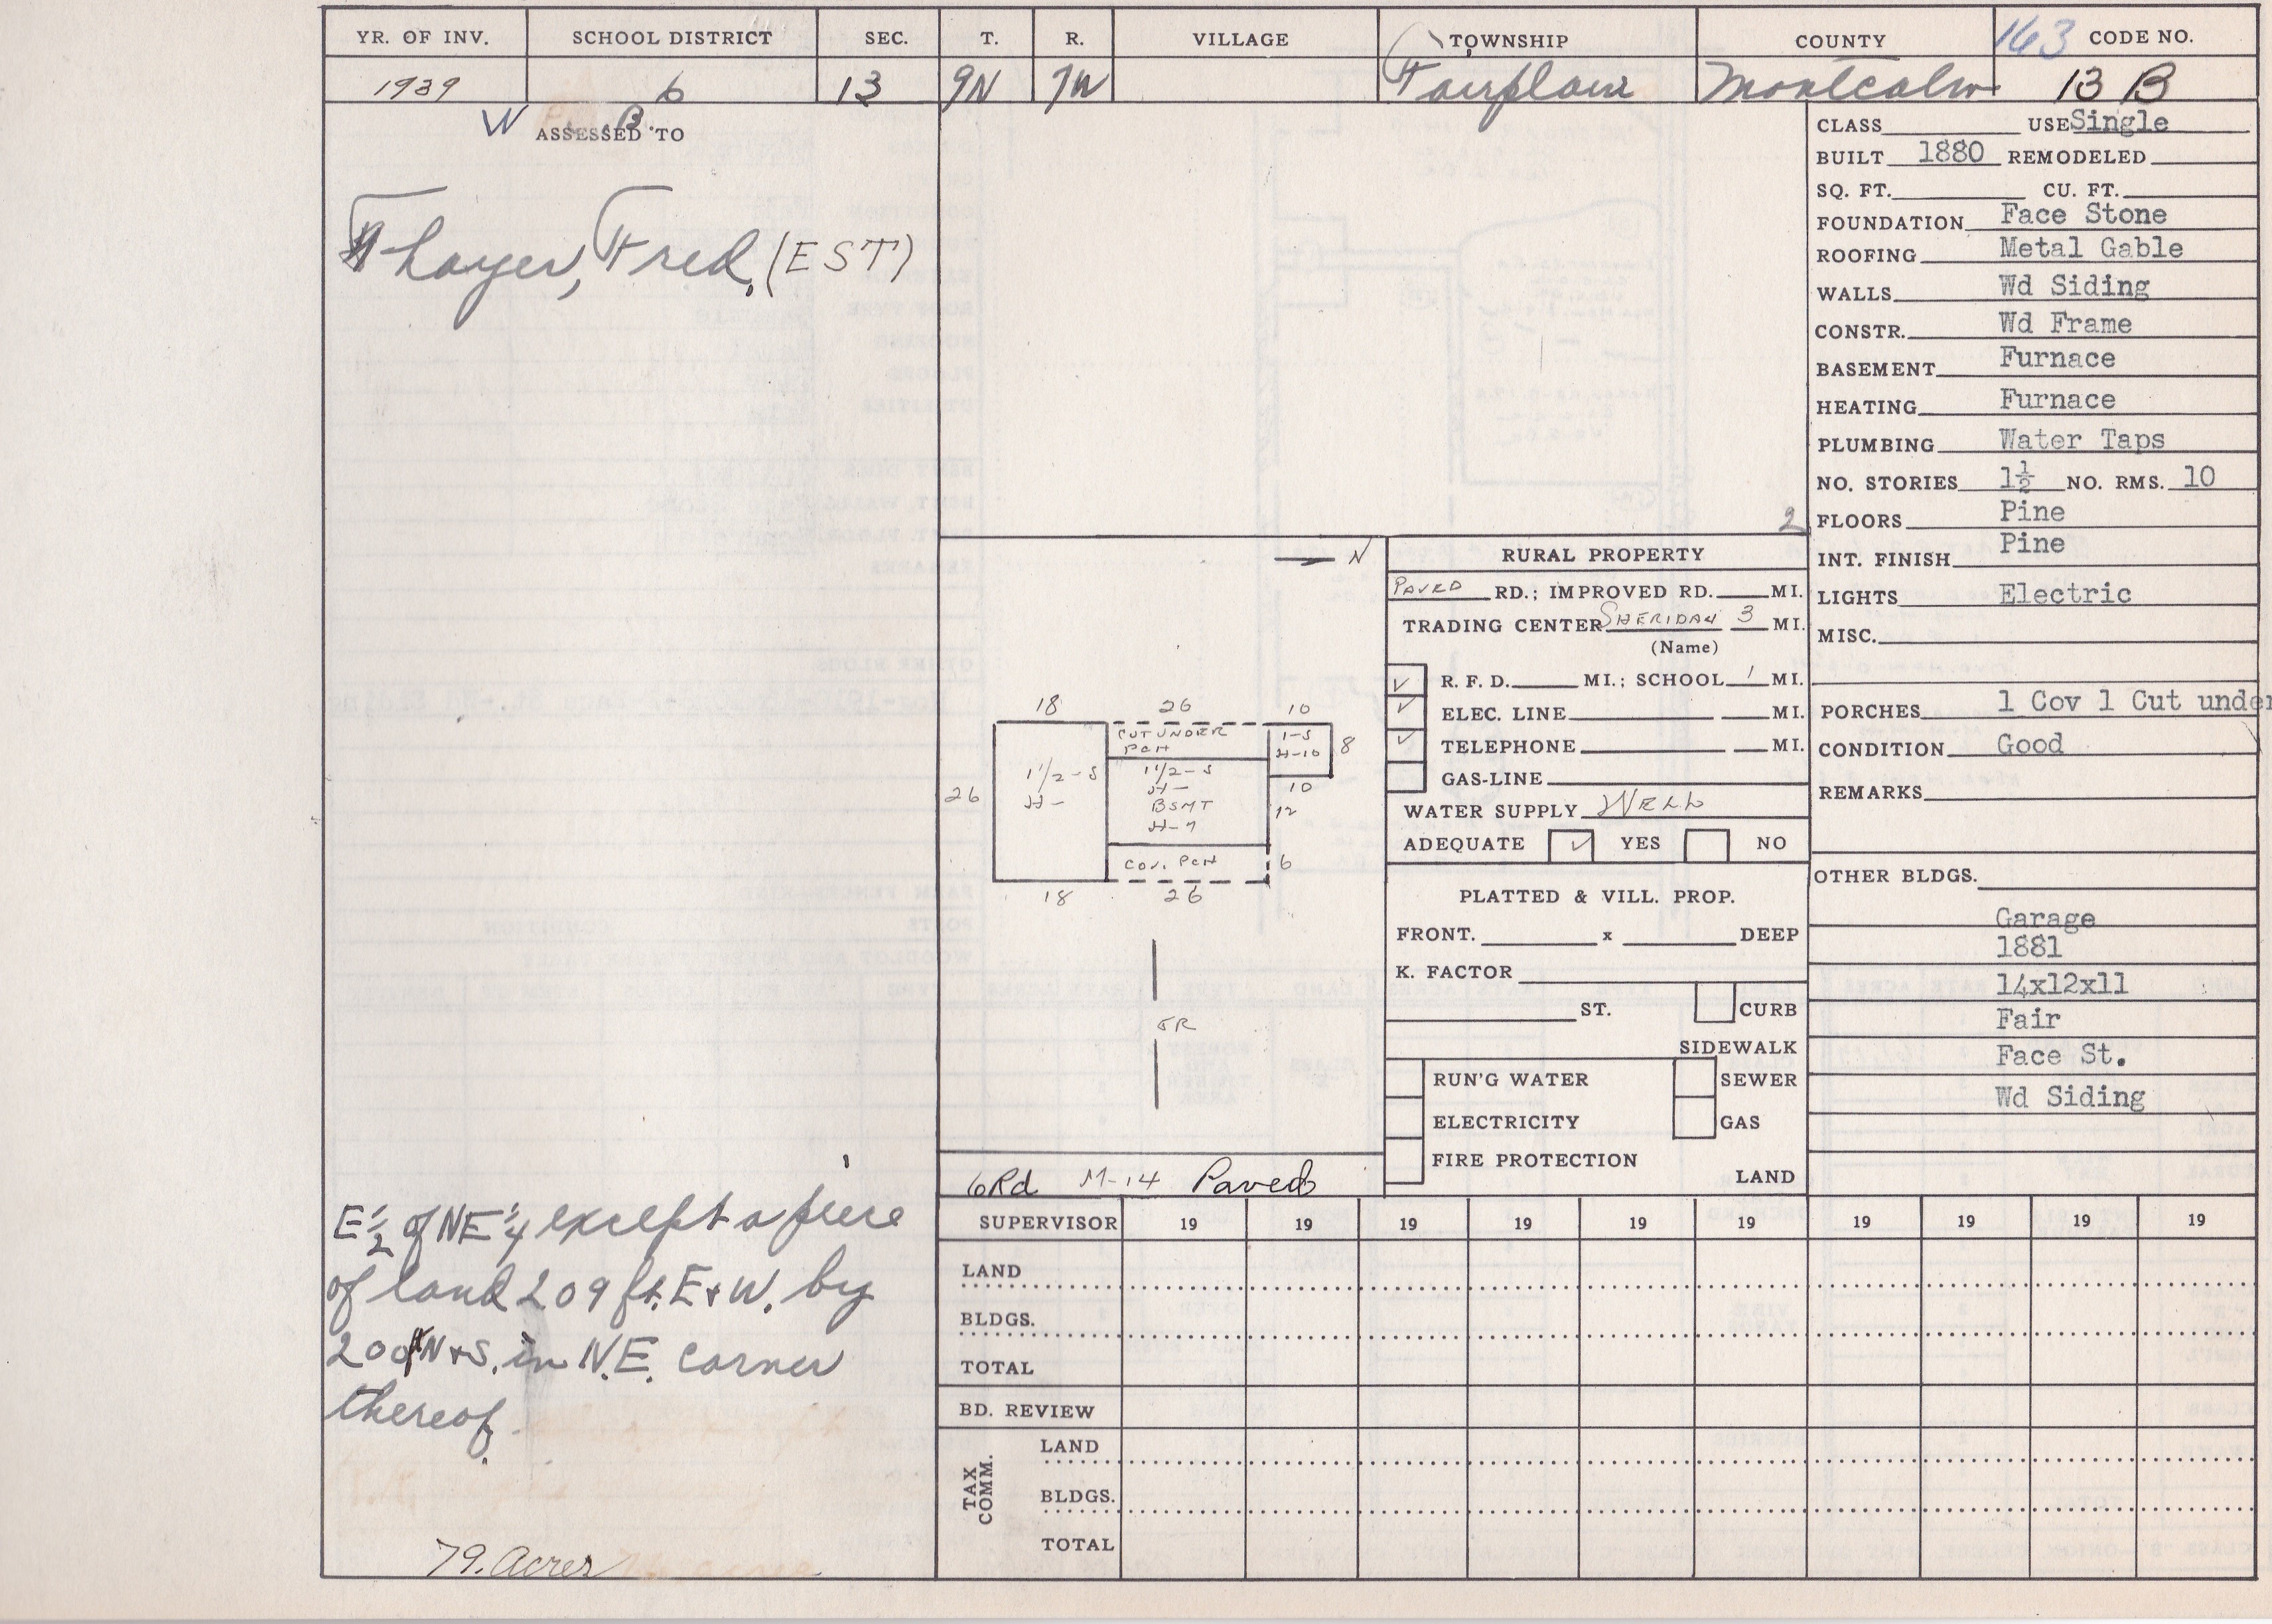 YR. OF INV. SCHOOL DISTRICT SEC. T. R. VILLAGE TOWNSHIP COUNTY 163 CODE NO.
1939 6 13 9N 7W Fairplain Montcalm 13 B
W B.
ASSESSED TO
Thayer, Fred, (EST)
CLASS USE Single
BUILT 1880 REMODELED
SQ. FT. CU. FT.
FOUNDATION Face Stone
ROOFING Metal Gable
WALLS Wd Siding
CONSTR. Wd Frame
BASEMENT Furnace
HEATING Furnace
PLUMBING Water Taps
NO. STORIES 1½ NO. RMS. 10
2
FLOORS Pine
INT. FINISH Pine
LIGHTS Electric
MISC.
PORCHES 1 Cov 1 Cut under
CONDITION Good
REMARKS
OTHER BLDGS.
Garage
1881
14x12x11
Fair
Face St.
Wd Siding
N
18 26 10
CUT UNDER
PCH
1-S
H-10
8
1 1/2-S
H-
1 1/2-S
H-
BSMT
H-7
26
10
12
COV. PCH
6
18 26
GR
6Rd M-14 Paved
RURAL PROPERTY
PAVED RD.; IMPROVED RD. MI.
TRADING CENTER SHERIDAN 3 MI.
(Name)
R. F. D. MI.; SCHOOL 1 MI.
ELEC. LINE MI.
TELEPHONE MI.
GAS-LINE
WATER SUPPLY WELL
ADEQUATE YES NO
PLATTED & VILL. PROP.
FRONT. x DEEP
K. FACTOR
ST. CURB
SIDEWALK
RUN'G WATER SEWER
ELECTRICITY GAS
FIRE PROTECTION
LAND
E ½ of NE ¼ except a piece
of land 209 ft. E & W. by
200 ft N & S. in N.E. corner
thereof.
79. Acres
SUPERVISOR 19 19 19 19 19 19 19 19 19 19
LAND
BLDGS.
TOTAL
BD. REVIEW
TAX COMM.
LAND
BLDGS.
TOTAL